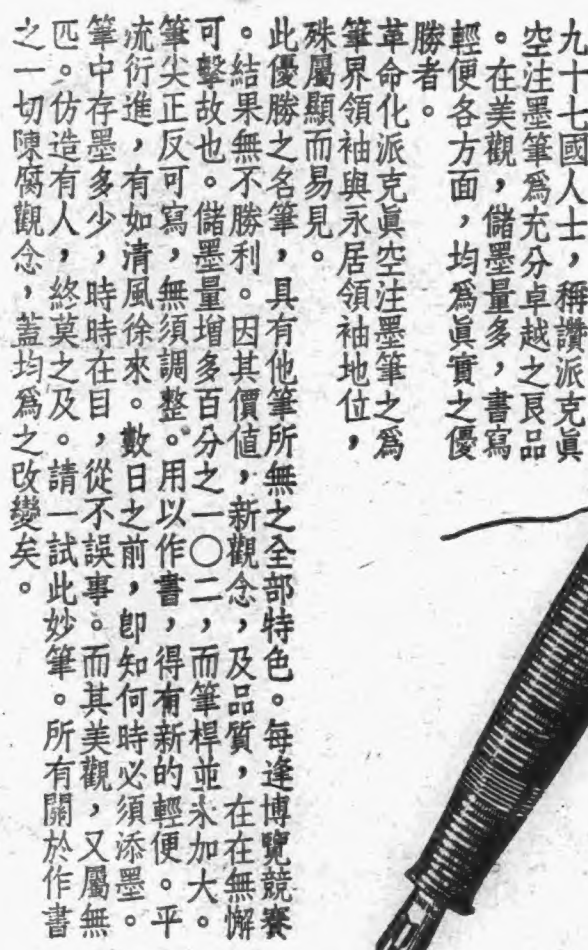 九十七國人士，稱讚派克眞
空注墨筆爲充分卓越之良品
。在美觀，儲墨量多，書寫
輕便各方面，均爲眞實之優
勝者。
革命化派克眞空注墨筆之爲
筆界領袖與永居領袖地位，
殊屬顯而易見。
此優勝之名筆，具有他筆所無之全部特色。每逢博覽競賽
。結果無不勝利。因其價值，新觀念，及品質，在在無懈
可擊故也。儲墨量增多百分之一〇二，而筆桿並未加大。
筆尖正反可寫，無須調整。用以作書，得有新的輕便。平
流衍進，有如清風徐來。數日之前，卽知何時必須添墨。
筆中存墨多少，時時在目，從不誤事。而其美觀，又屬無
匹。仿造有人，終莫之及。請一試此妙筆。所有關於作書
之一切陳腐觀念，蓋均爲之改變矣。